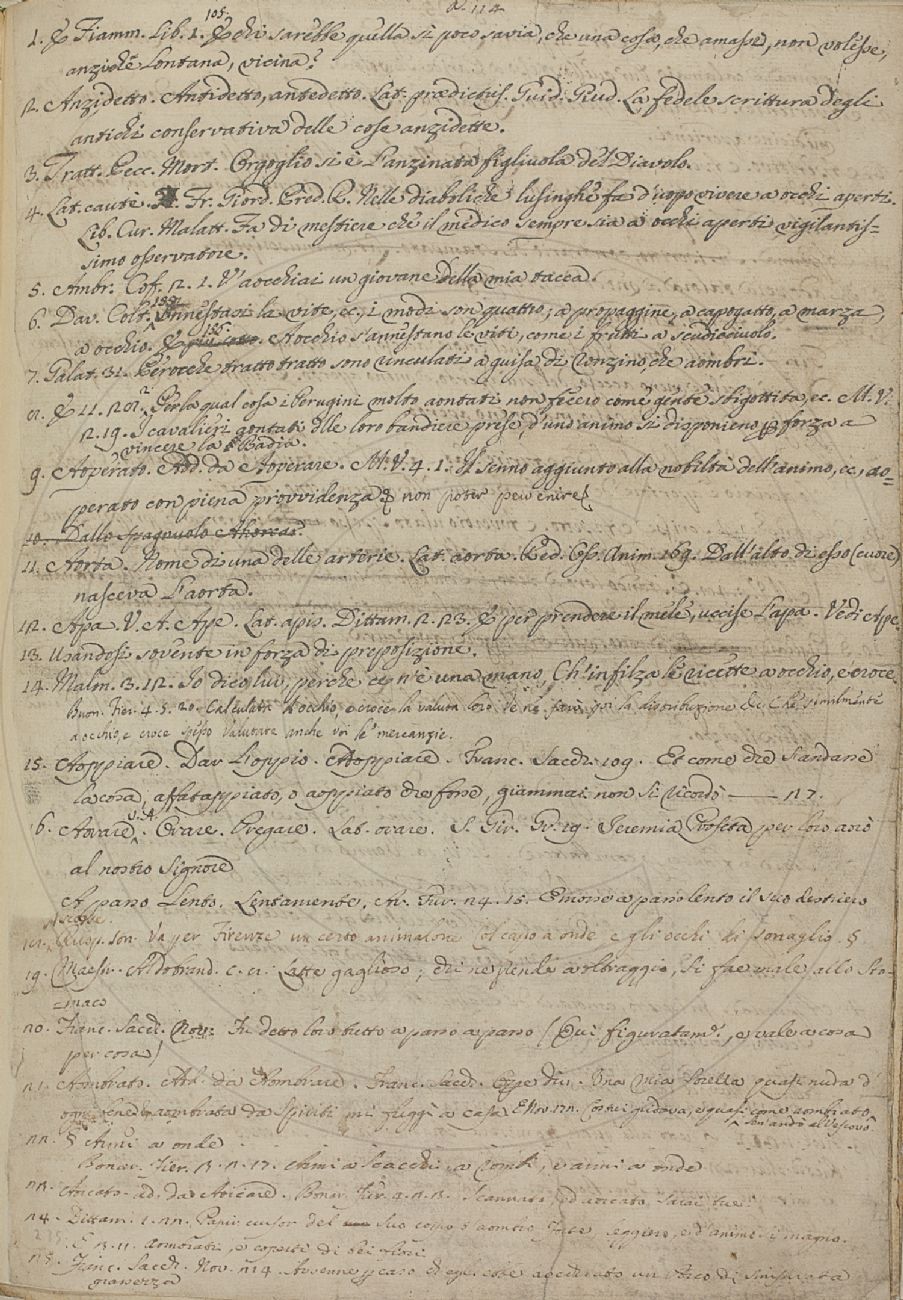 a. 114
1. & Fiamm. Lib. 1. 105. & chi sarebbe quella sì poco savia, che una cosa, che amasse, non volesse,
anzichè lontana, vicina?
2. Anzidetto. Antidetto, antedetto. Lat. prædictus. Guid. Giud. La fedele scrittura degli
antichi conservativa delle cose anzidette.
3. Tratt. Pecc. Mort. Orgoglio si è l'anzinata figliuola del Diavolo.
4. Lat. caute. Fr. Giord. Pred. R. Nelle diaboliche lusinghe fa d'uopo vivere a occhi aperti.
Lib. Cur. Malatt. Fa di mestiere che il medico sempre sia a occhi aperti vigilantis=
simo osservatore.
5. Ambr. Cof. 2. 1. V'aocchiai un giovane della mia tacca.
6. Dav. Colt. Annestasi la vite, ec, i modi son quattro, a propaggine, a capogatto, a marza,
a occhio. A occhio s'annestano le viti, come i frutti a scudicciuolo.
7. Galat. 31. Perocchè tratto tratto sono vinculati a guisa di ronzino, che aombri.
8. & 11. 121. Per la qual cosa i Perugini molto aontati non fecero come gente sbigottita, ec. M. V.
2. 19. I cavalieri aontati delle loro bandiere prese, d'uno animo si disponieno per forza a
vincere la Badia.
9. Aoperato. Add. da Aoperare. M. V. 4. 1. Il senno aggiunto alla nobiltà dell'animo, ec, ao=
perato con piena provvidenza & non poter pervenire
10. Dallo spagnuolo Ahorcar.
11. Aorta. Nome di una delle arterie. Lat. aorta. Red. Oss. Anim. 169. Dall'alto di esso (cuore)
nasceva l'aorta.
12. Apa. V. A. Ape. Lat. apis. Dittam. 2. 23. & per prendere il mele, uccise l'apa. Vedi Ape.
13. Usandosi sovente in forza di preposizione.
14. Malm. 3. 12. Io dico lui, perchè ce n'è una mano, Ch'infilza le ricette a occhio, e croce.
Buon. Fier. 4. 5. 20. Calculata a occhio e croce la valuta loro Se ne farà poi la distribuzione & Che similmente
a occhio, e croce spesso valutate anche voi le mercanzie.
15. Aoppiare. Dar l'oppio. Adoppiare. Franc. Sacch. 109. Et come che s'andasse
la cosa, affatappiato, o aoppiato che fosse, giammai non si ricordò —— 27.
6. Aorare. V. A. Orare. Pregare. Lat. orare. S. Gir. Gr. 19. Jeremia Profeta per loro aorò
al nostro Signore
A passo Lento. Lentamente. Ar. Fur. 24. 15. E mosse a passo lento il suo destriero
Va per Firenze un certo animalone Col capo a onde, e gli occhi di sonaglio. §
19. Maestr. Aldobrand. Latte gaglioso, chi ne prende a oltraggio, si fae male allo sto=
maco
20. Franc. Sacch. Nov. Fu detto loro tutto a passo a passo (Qui figuratam.e, e vale a cosa
per cosa)
21. Aombrato. Add. da Aombrare. Franc. Sacch. Op. div. Una mia sorella quasi nuda d'
ogni bene aombrata da spiriti mi fuggì a casa E Nov. Costui giudeva, e quasi come aombrato
sen'andò al Vescovo.
22. § Armi a onde
Bonar. Fier. 3. 2. 17. Armi a scacchi, a rombi, e armi a onde
23. Aorcato. ad. da Aorcare. Bonar. Fier. Scannato, ed aorcato sarai tue.
24. Dittam. 1. 22. Papir cursor del suo corpo leggiero, e d'animo magno.
E 3. 11. coperte di bei fiori.
25. Franc. Sacch. Nov. 214. Avvenne per caso ch'egli ebbe un porco di smisurata
grassezza